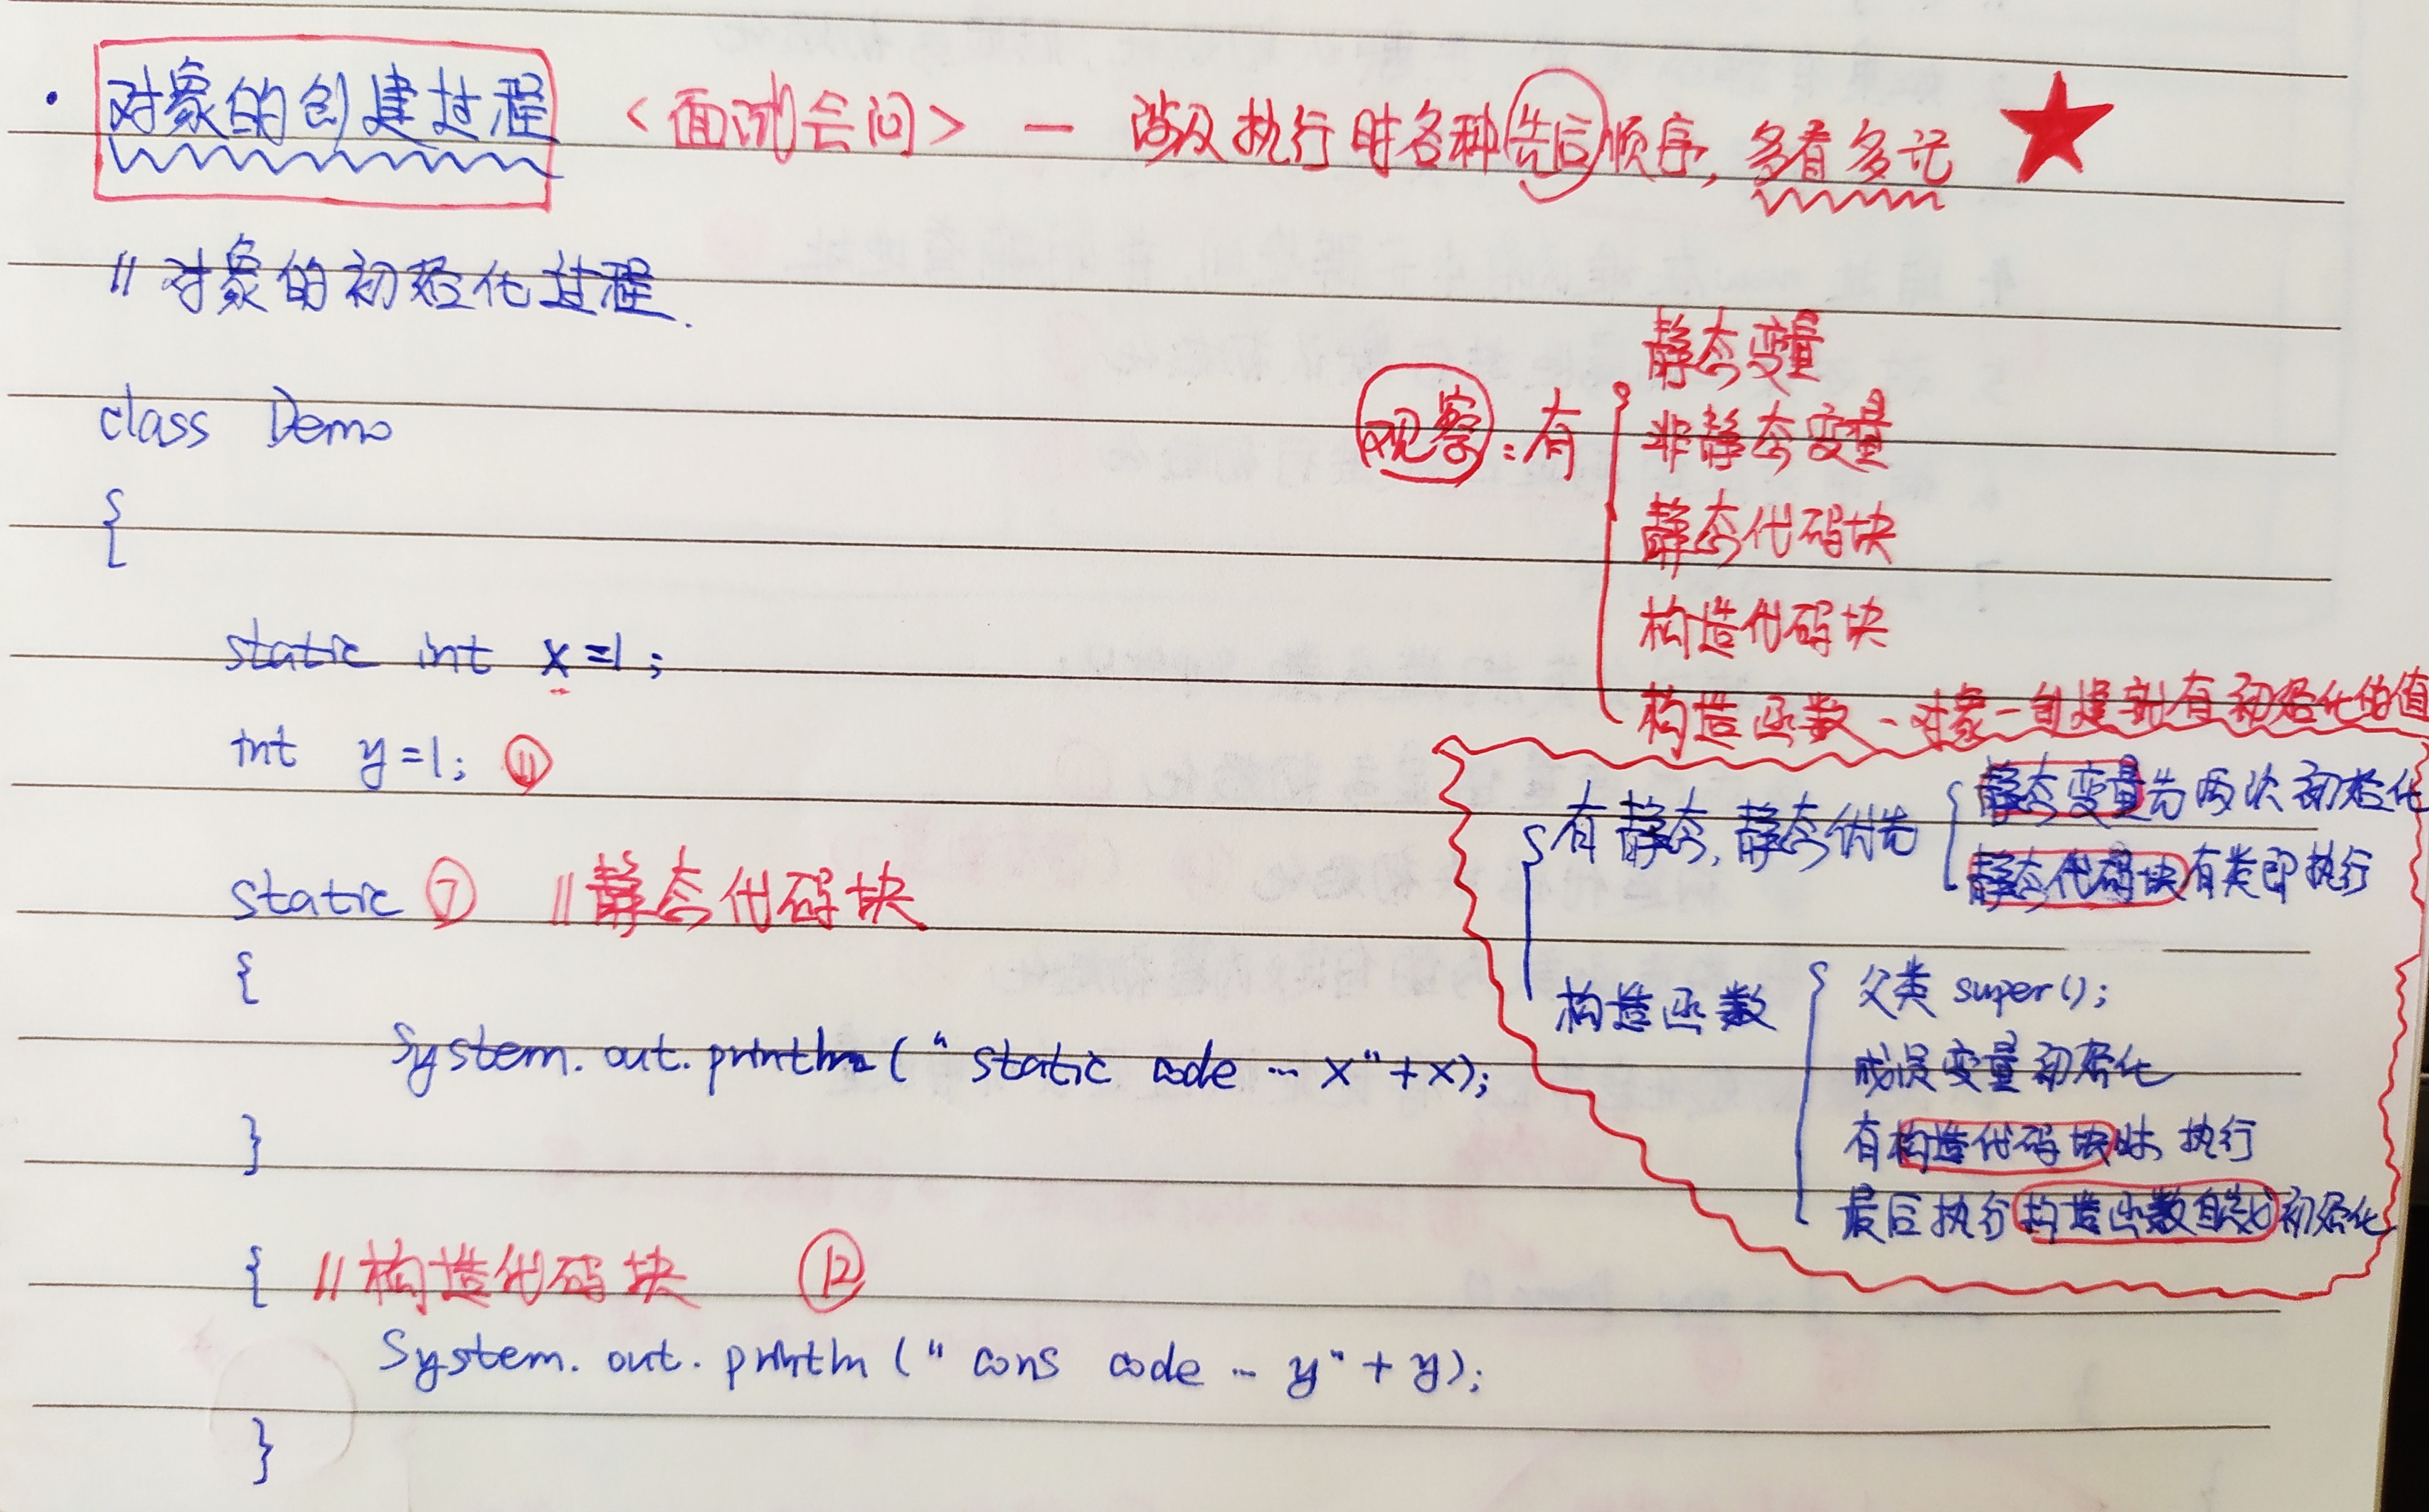 · 对象的创建过程 <面试会问> — 涉及执行时各种先后顺序, 多看多记 ★
// 对象的初始化过程.
class Demo
{
static int x=1;
int y=1; ⑪
static ⑦ //静态代码块
{
System.out.println("static code … x"+x);
}
{ //构造代码块 ⑫
System.out.println("cons code … y"+y);
}
观察:有
静态变量
非静态变量
静态代码块
构造代码块
构造函数-对象一创建就有初始化的值
有静态,静态优先
静态变量先两次初始化
静态代码块有类即执行
构造函数
父类super();
成员变量初始化
有构造代码块时 执行
最后执行构造函数自定义初始化